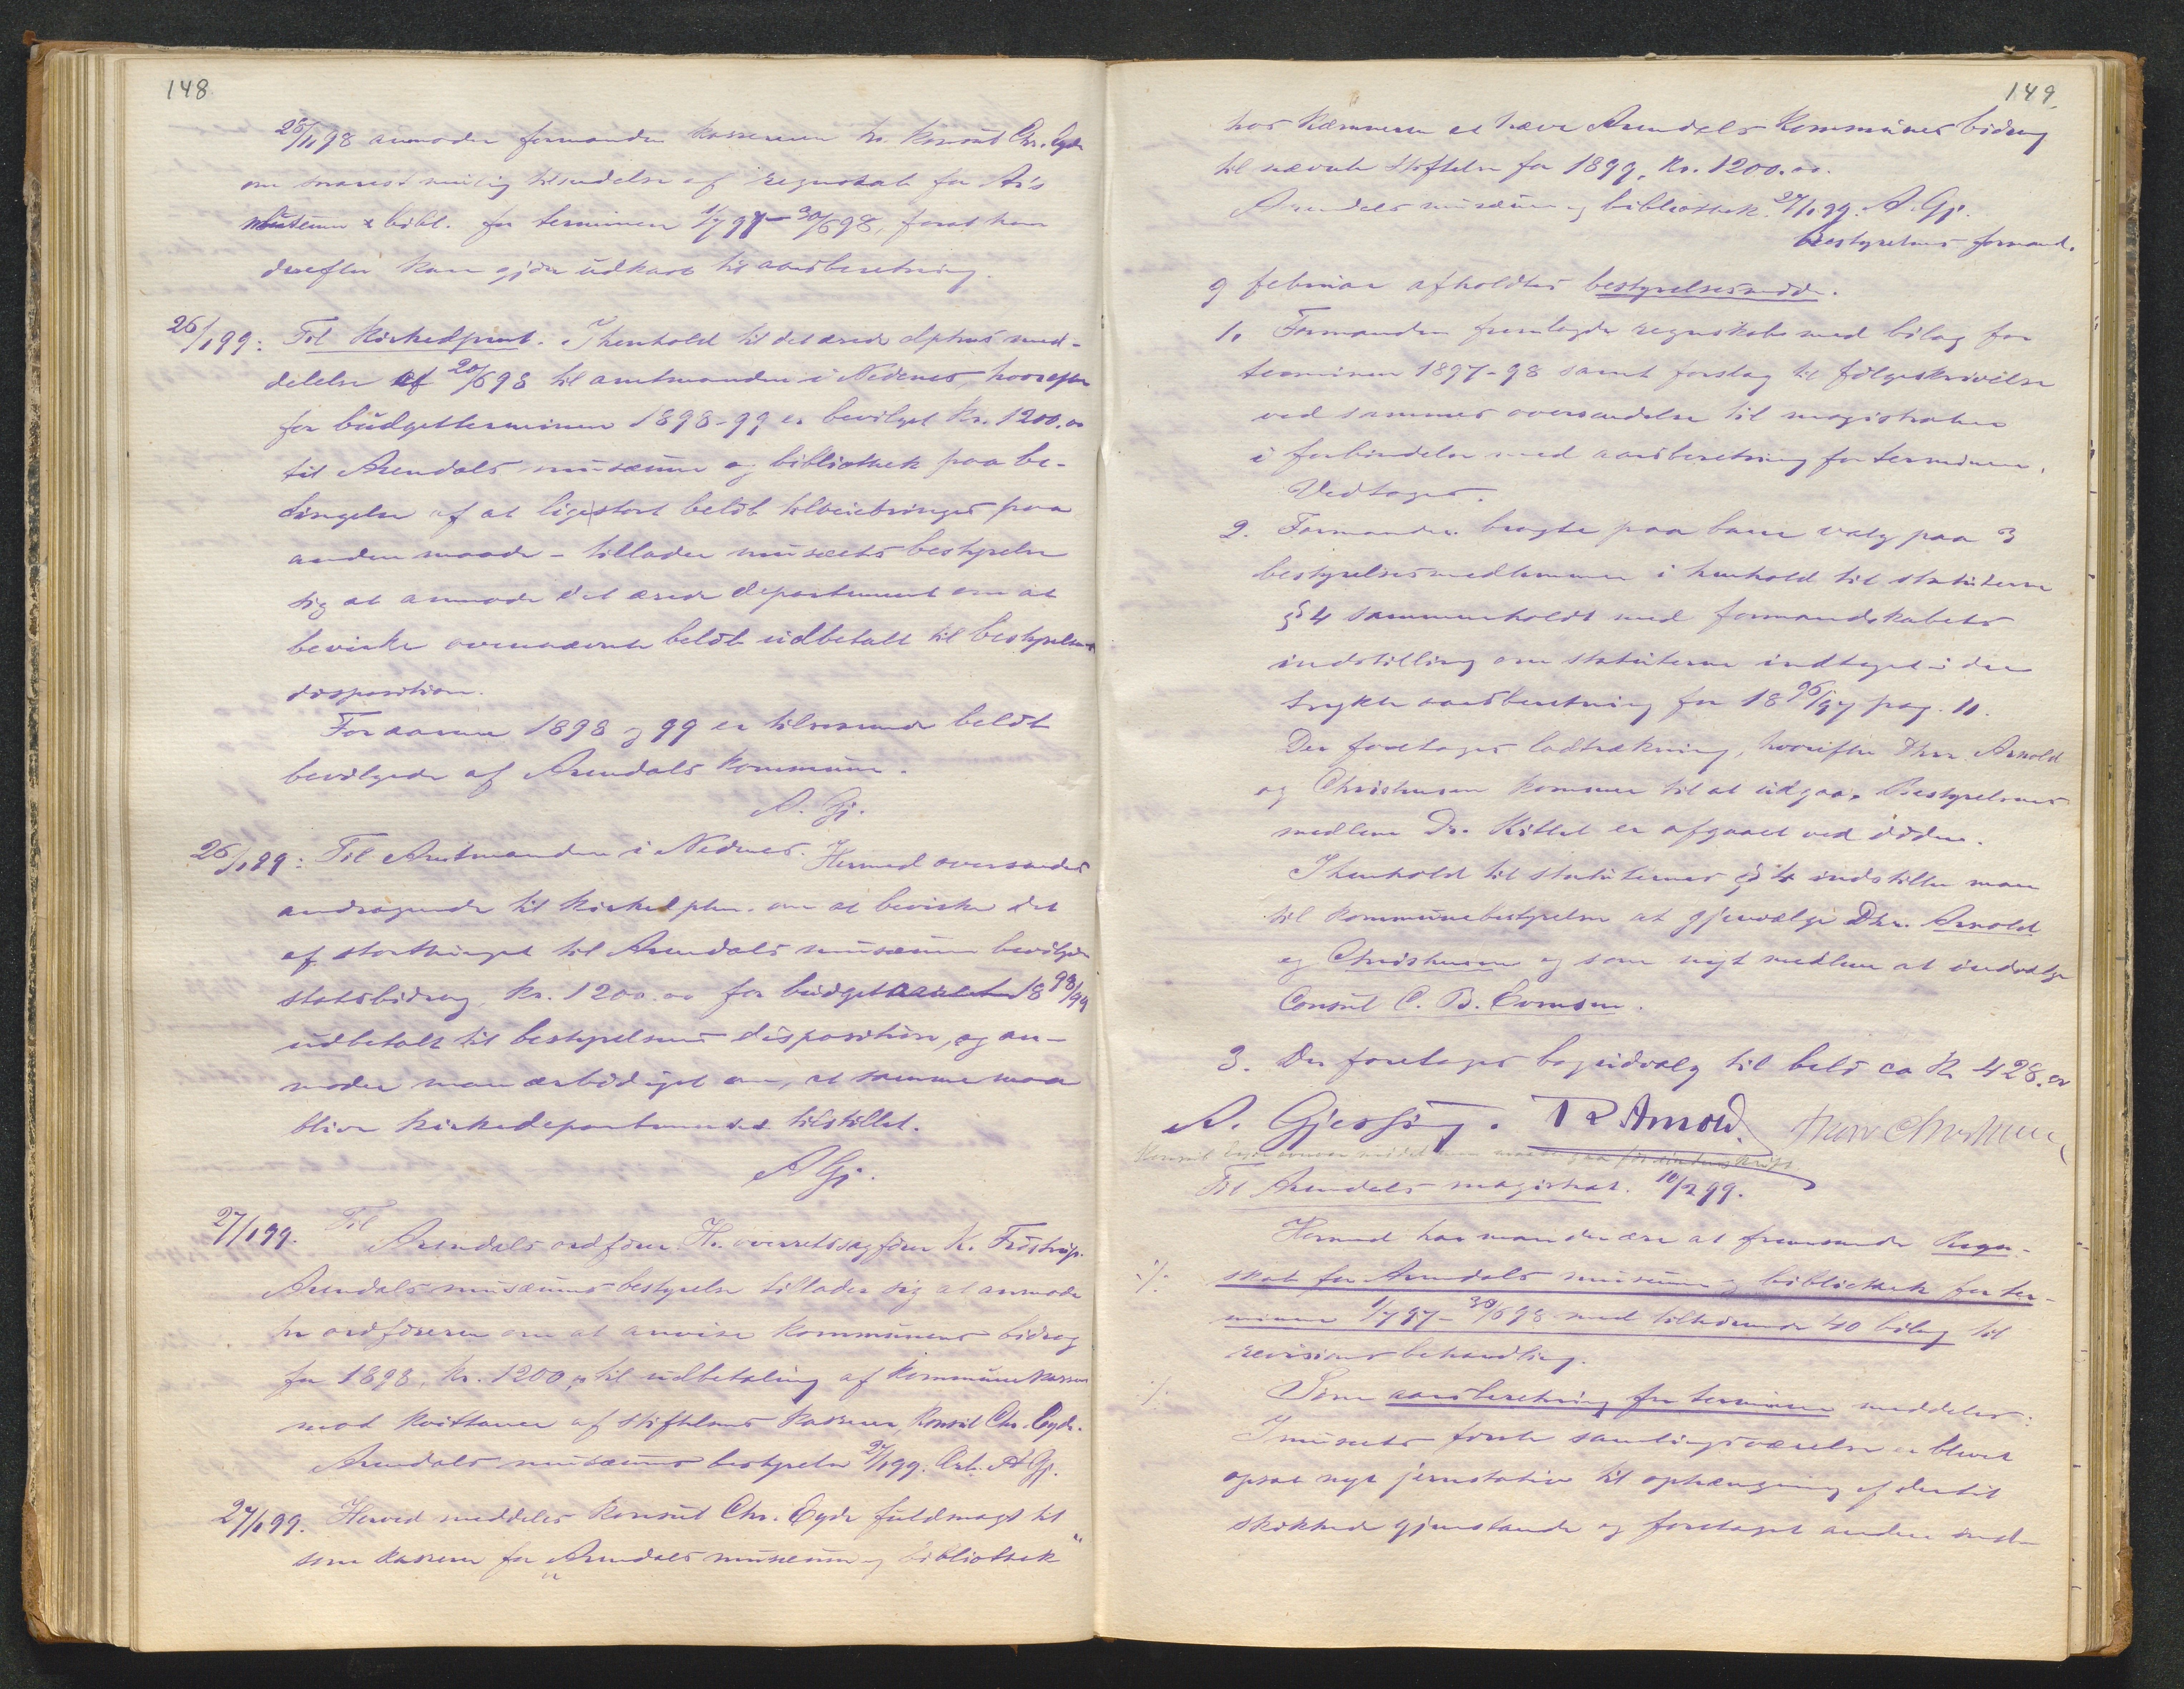 148
28/11 98 anmoder formanden kassereren hr. konsul Chr. Eyde
om snarest mulig tilsendelse af regnskab for Ar's
museum & bibl. for terminen 1/7 97 – 30/6 98, forat han
derefter kan gjöre udkast til aarsberetning.
26/1 99: Til Kirkedpmt. I henhold til det ærede dptms med-
delelse af 20/6 98 til amtmanden i Nedenes, hvorefter
for budgetterminen 1898-99 er bevilget Kr. 1200.00
til Arendals musæum og bibliothek paa be-
tingelse af at ligestort belöb tilveiebringes paa
anden maade – tillader musæets bestyrelse
sig at anmode det ærede departement om at
bevirke ovennævnte belöb udbetalt til bestyrelsens
disposition.
For aarene 1898 og 99 er tilsvarende belöb
bevilgede af Arendals kommune.
A. Gj.
26/1 99: Til Amtmanden i Nedenes. Hermed oversendes
andragende til Kirkedptm. om at bevirke det
af storthinget til Arendals musæum bevilgede
statsbidrag, kr. 1200.00 for budgetaaret 18 98/99
udbetalt til bestyrelsens disposition, og an-
moder man ærbödigst om, at samme maa
blive kirkedepartementet tilstillet.
A Gj.
27/1 99. Til
Arendals ordförer Hr. overretssagförer K. Fröstrup.
Arendals musæums bestyrelse tillader sig at anmode
hr ordföreren om at anvise kommunens bidrag
for 1898, kr. 1200,00 til udbetaling af kommunekassen
mod kvittance af stiftelsens kasserer, konsul Chr. Eyde.
Arendals musæums bestyrelse 27/1 99. Ærb. A Gj.
27/1 99. Herved meddeles konsul Chr. Eyde fuldmagt til
som kasserer for „Arendals musæum og bibliothek"
149
hos kæmneren at hæve Arendals Kommunes bidrag
til nævnte stiftelse for 1899, kr. 1200.00.
Arendals musæum og bibliothek 27/1 99. A. Gj.
Bestyrelsens formand.
9 februar afholdtes bestyrelsesmöde.
1. Formanden fremlagde regnskab med bilag for
terminen 1897-98 samt forslag til fölgeskrivelse
ved sammes oversendelse til magistraten
i forbindelse med aarsberetning for terminen.
Vedtoges.
2. Formanden bragte paa bane valg paa 3
bestyrelsesmedlemmer i henhold til statuterne
§ 4 sammenholdt med formandskabets
indstilling om statuterne indtaget i den
trykte aarsberetning for 18 96/97 pag. 11.
Der foretoges lodtrækning, hvorefter Dhrr. Arnold
og Christensen kommer til at udgaa. Bestyrelses
medlem Dr. Kittel er afgaaet ved döden.
I henhold til statuternes § 4 indstiller man
til kommunebestyrelsen at gjenvælge Dhr. Arnold
og Christensen og som nyt medlem at indvælge
Consul C. B. Evensen.
3. Der foretoges bogudvalg til belöb ca kr 428.00
A. Gjessing. Arnold.
Til Arendals magistrat. 10/2 99.
Hermed har man den ære at fremsende Regn-
·/. skab for Arendals musæum og bibliothek for ter-
minen 1/7 97 – 30/6 98 med tilhörende 40 bilag til
revisions behandling.
·/. Som aarsberetning for terminen meddeles:
I musæets förste samlingsværelse er blevet
opsat nye jernstativer til ophængning af dertil
skikkede gjenstande og foretaget anden